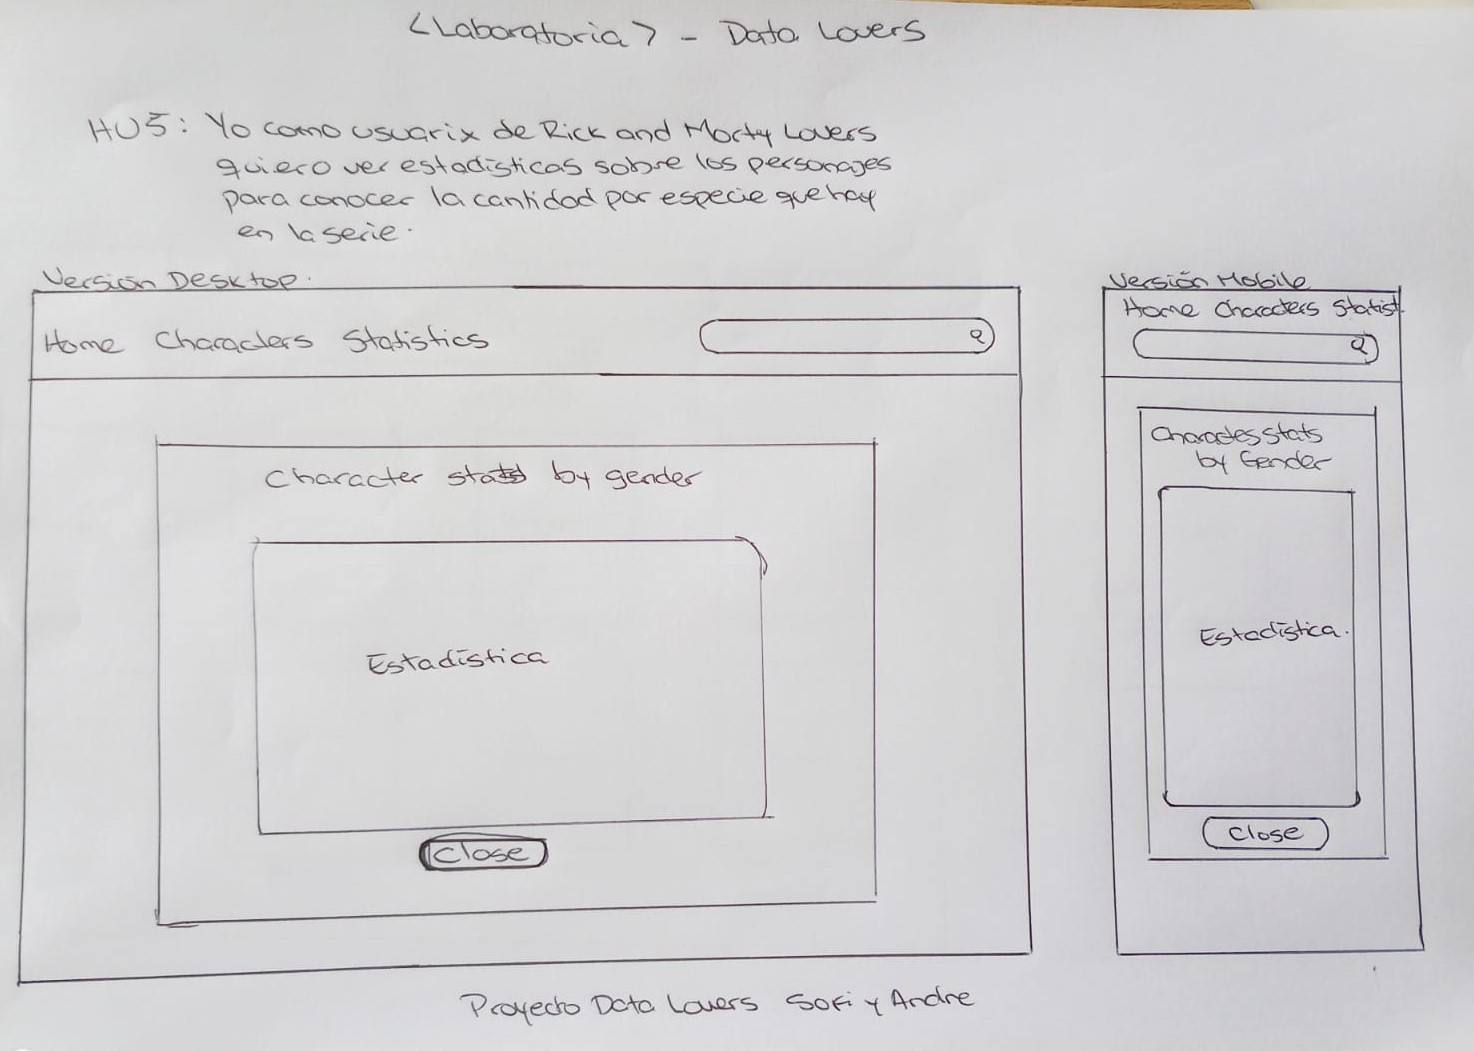 <Laboratoria> - Data Lovers
HU5: Yo como usuarix de Rick and Morty Lovers
quiero ver estadísticas sobre los personajes
para conocer la cantidad por especie que hay
en la serie.
Versión Desktop.
Home Characters Statistics
Character stats by gender
Estadística
Close
Versión Mobile
Home Characters Statist
Characters stats
by Gender
Estadística.
Close
Proyecto Data Lovers Sofi y Andre